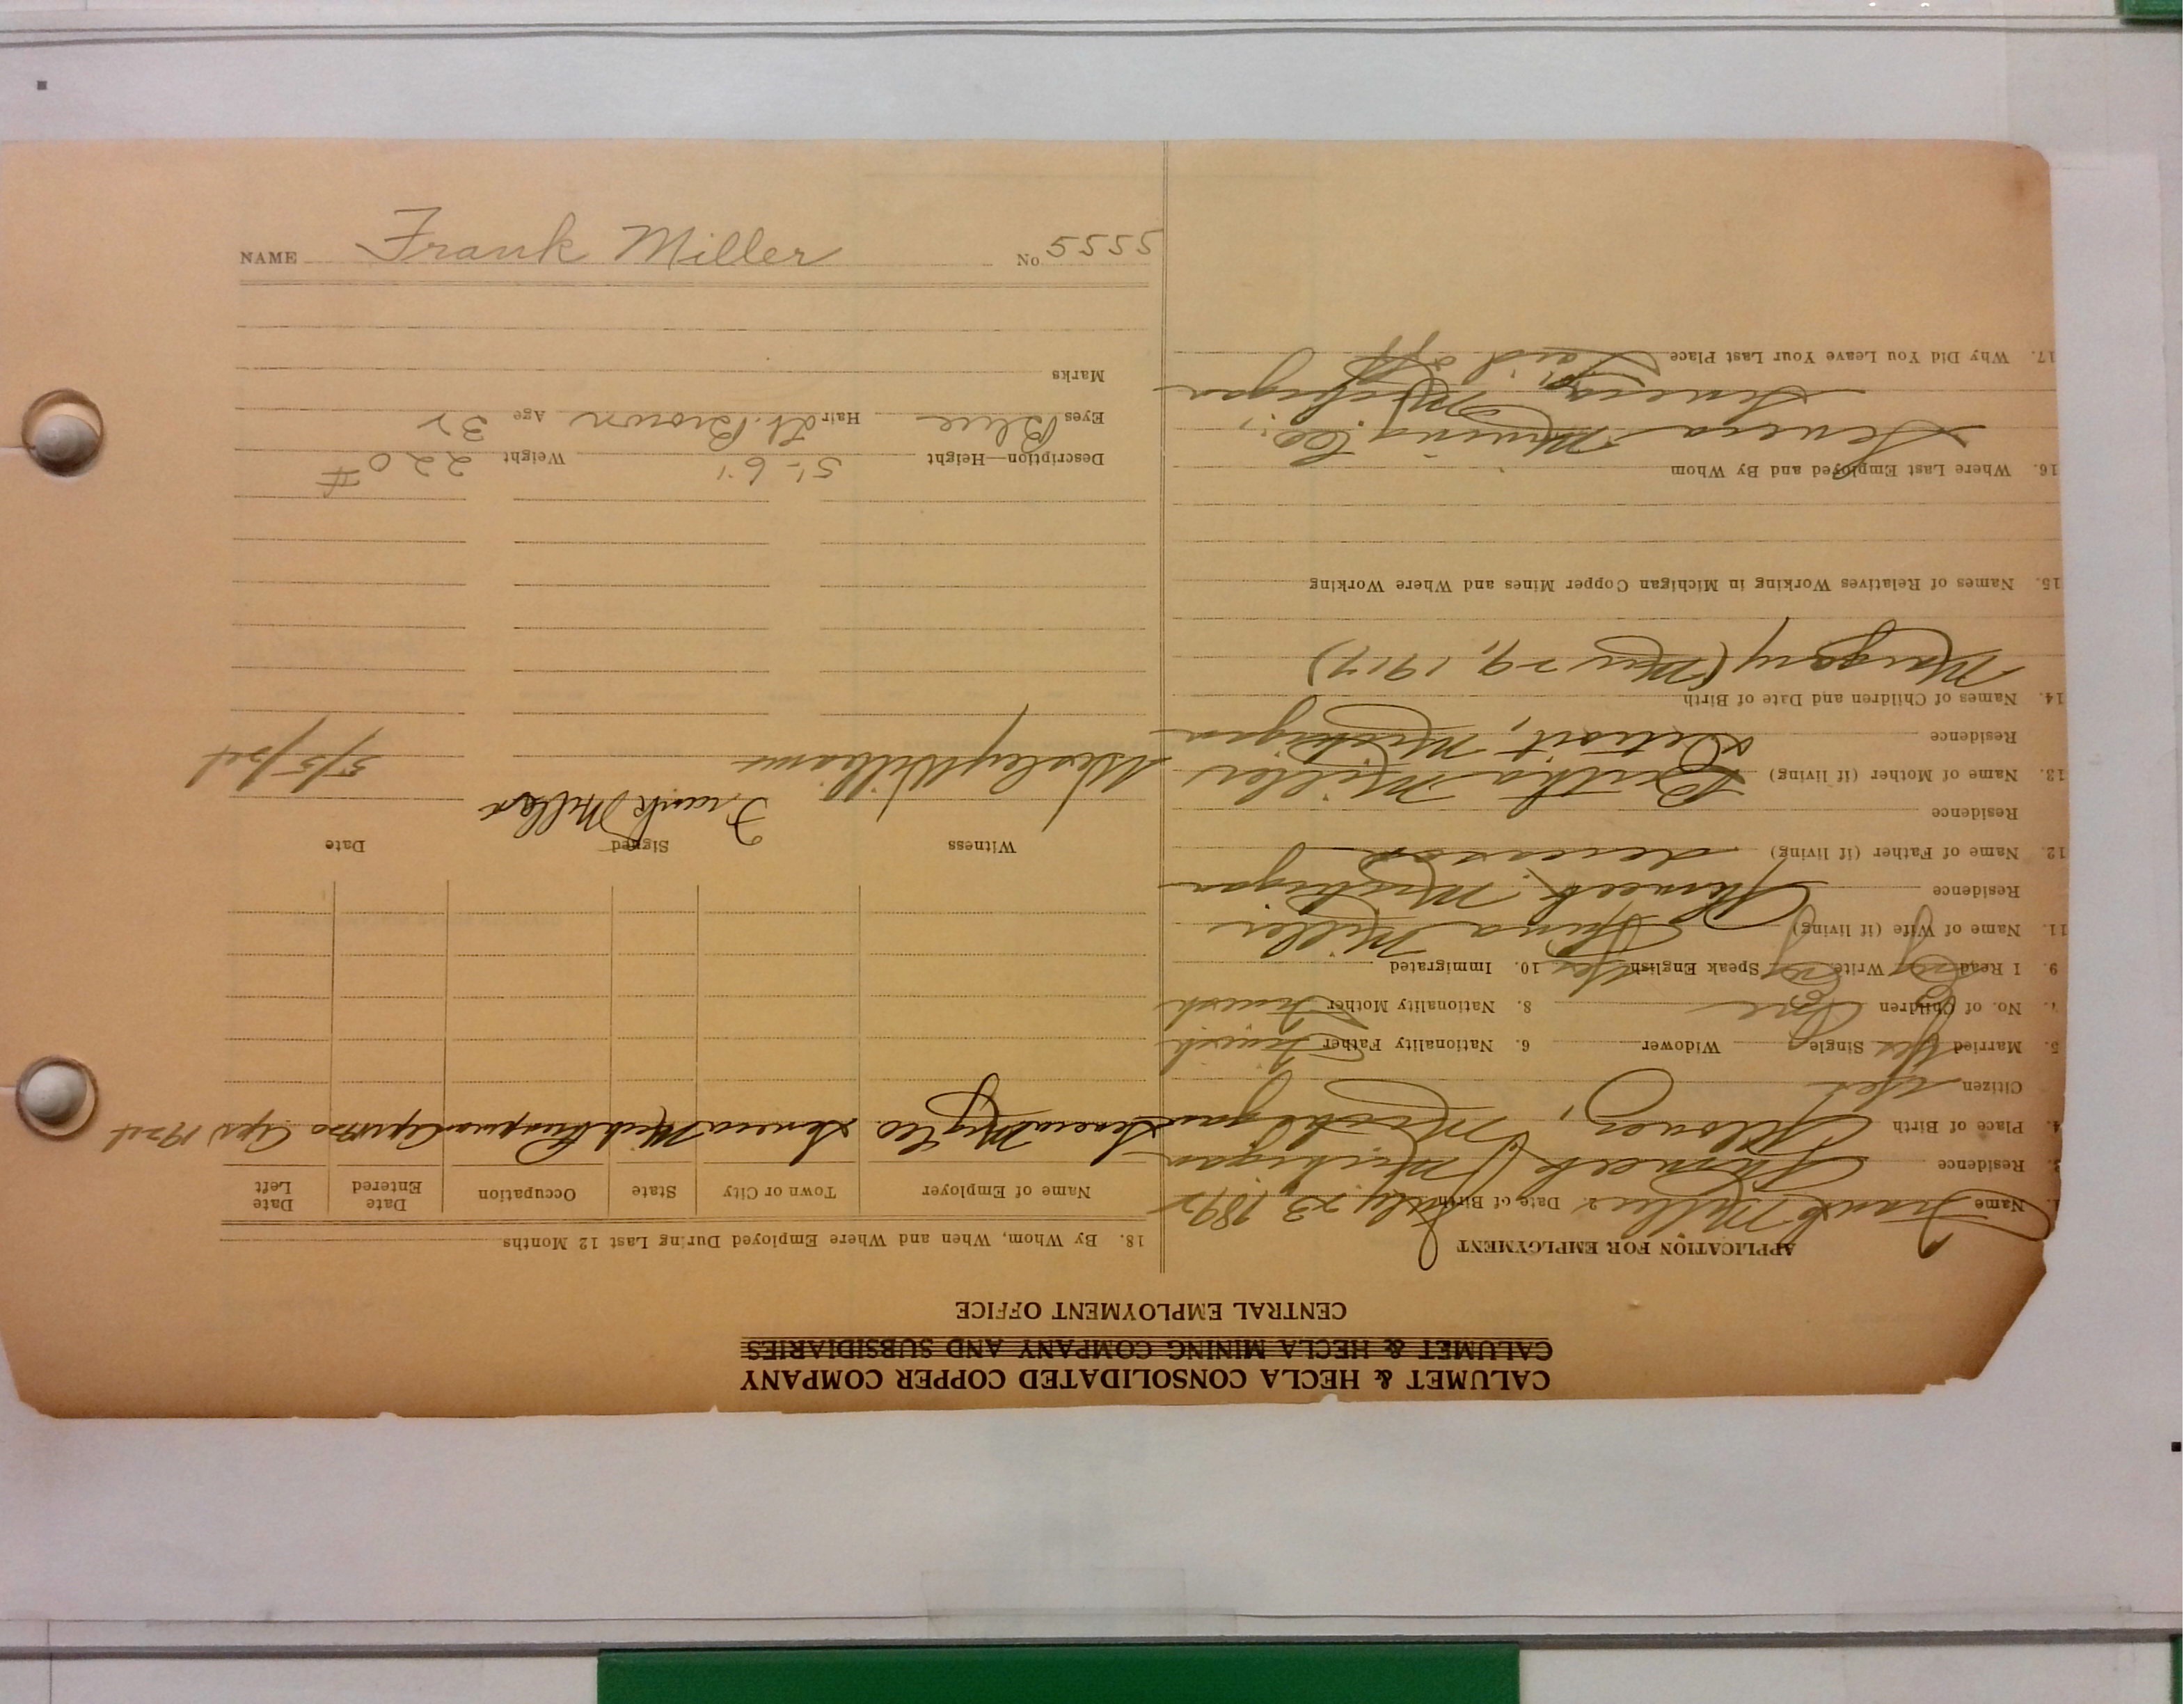 CALUMET & HECLA CONSOLIDATED COPPER COMPANY
CALUMET & HECLA MINING COMPANY AND SUBSIDIARIES
CENTRAL EMPLOYMENT OFFICE
APPLICATION FOR EMPLOYMENT
1. Name Frank Miller 2. Date of Birth July 23, 1892
3. Residence Ahmeek, Michigan
4. Place of Birth Allouez, Michigan
Citizen Yes
5. Married Yes Single Widower 6. Nationality Father Finnish
7. No. of Children One 8. Nationality Mother Finnish
9. I Read Eng Write Eng Speak English Yes 10. Immigrated
11. Name of Wife (if living) Miller
Residence Ahmeek, Michigan
12. Name of Father (if living) deceased
Residence
13. Name of Mother (if living) Bertha Miller
Residence Detroit, Michigan
14. Names of Children and Date of Birth
(29, 1917)
15. Names of Relatives Working in Michigan Copper Mines and Where Working
16. Where Last Employed and By Whom
Seneca Mining Co.,
Seneca, Michigan
17. Why Did You Leave Your Last Place Laid off
18. By Whom, When and Where Employed During Last 12 Months
Name of Employer Town or City State Occupation Date Entered Date Left
Seneca Mng Co. Seneca Mich 1920 Apr 1924
Witness Signed Date
Wesley Williams Frank Miller 5/5/24
Description—Height 5'-6" Weight 220 #
Eyes Blue Hair Lt. Brown Age 32
Marks
NAME Frank Miller No 5555